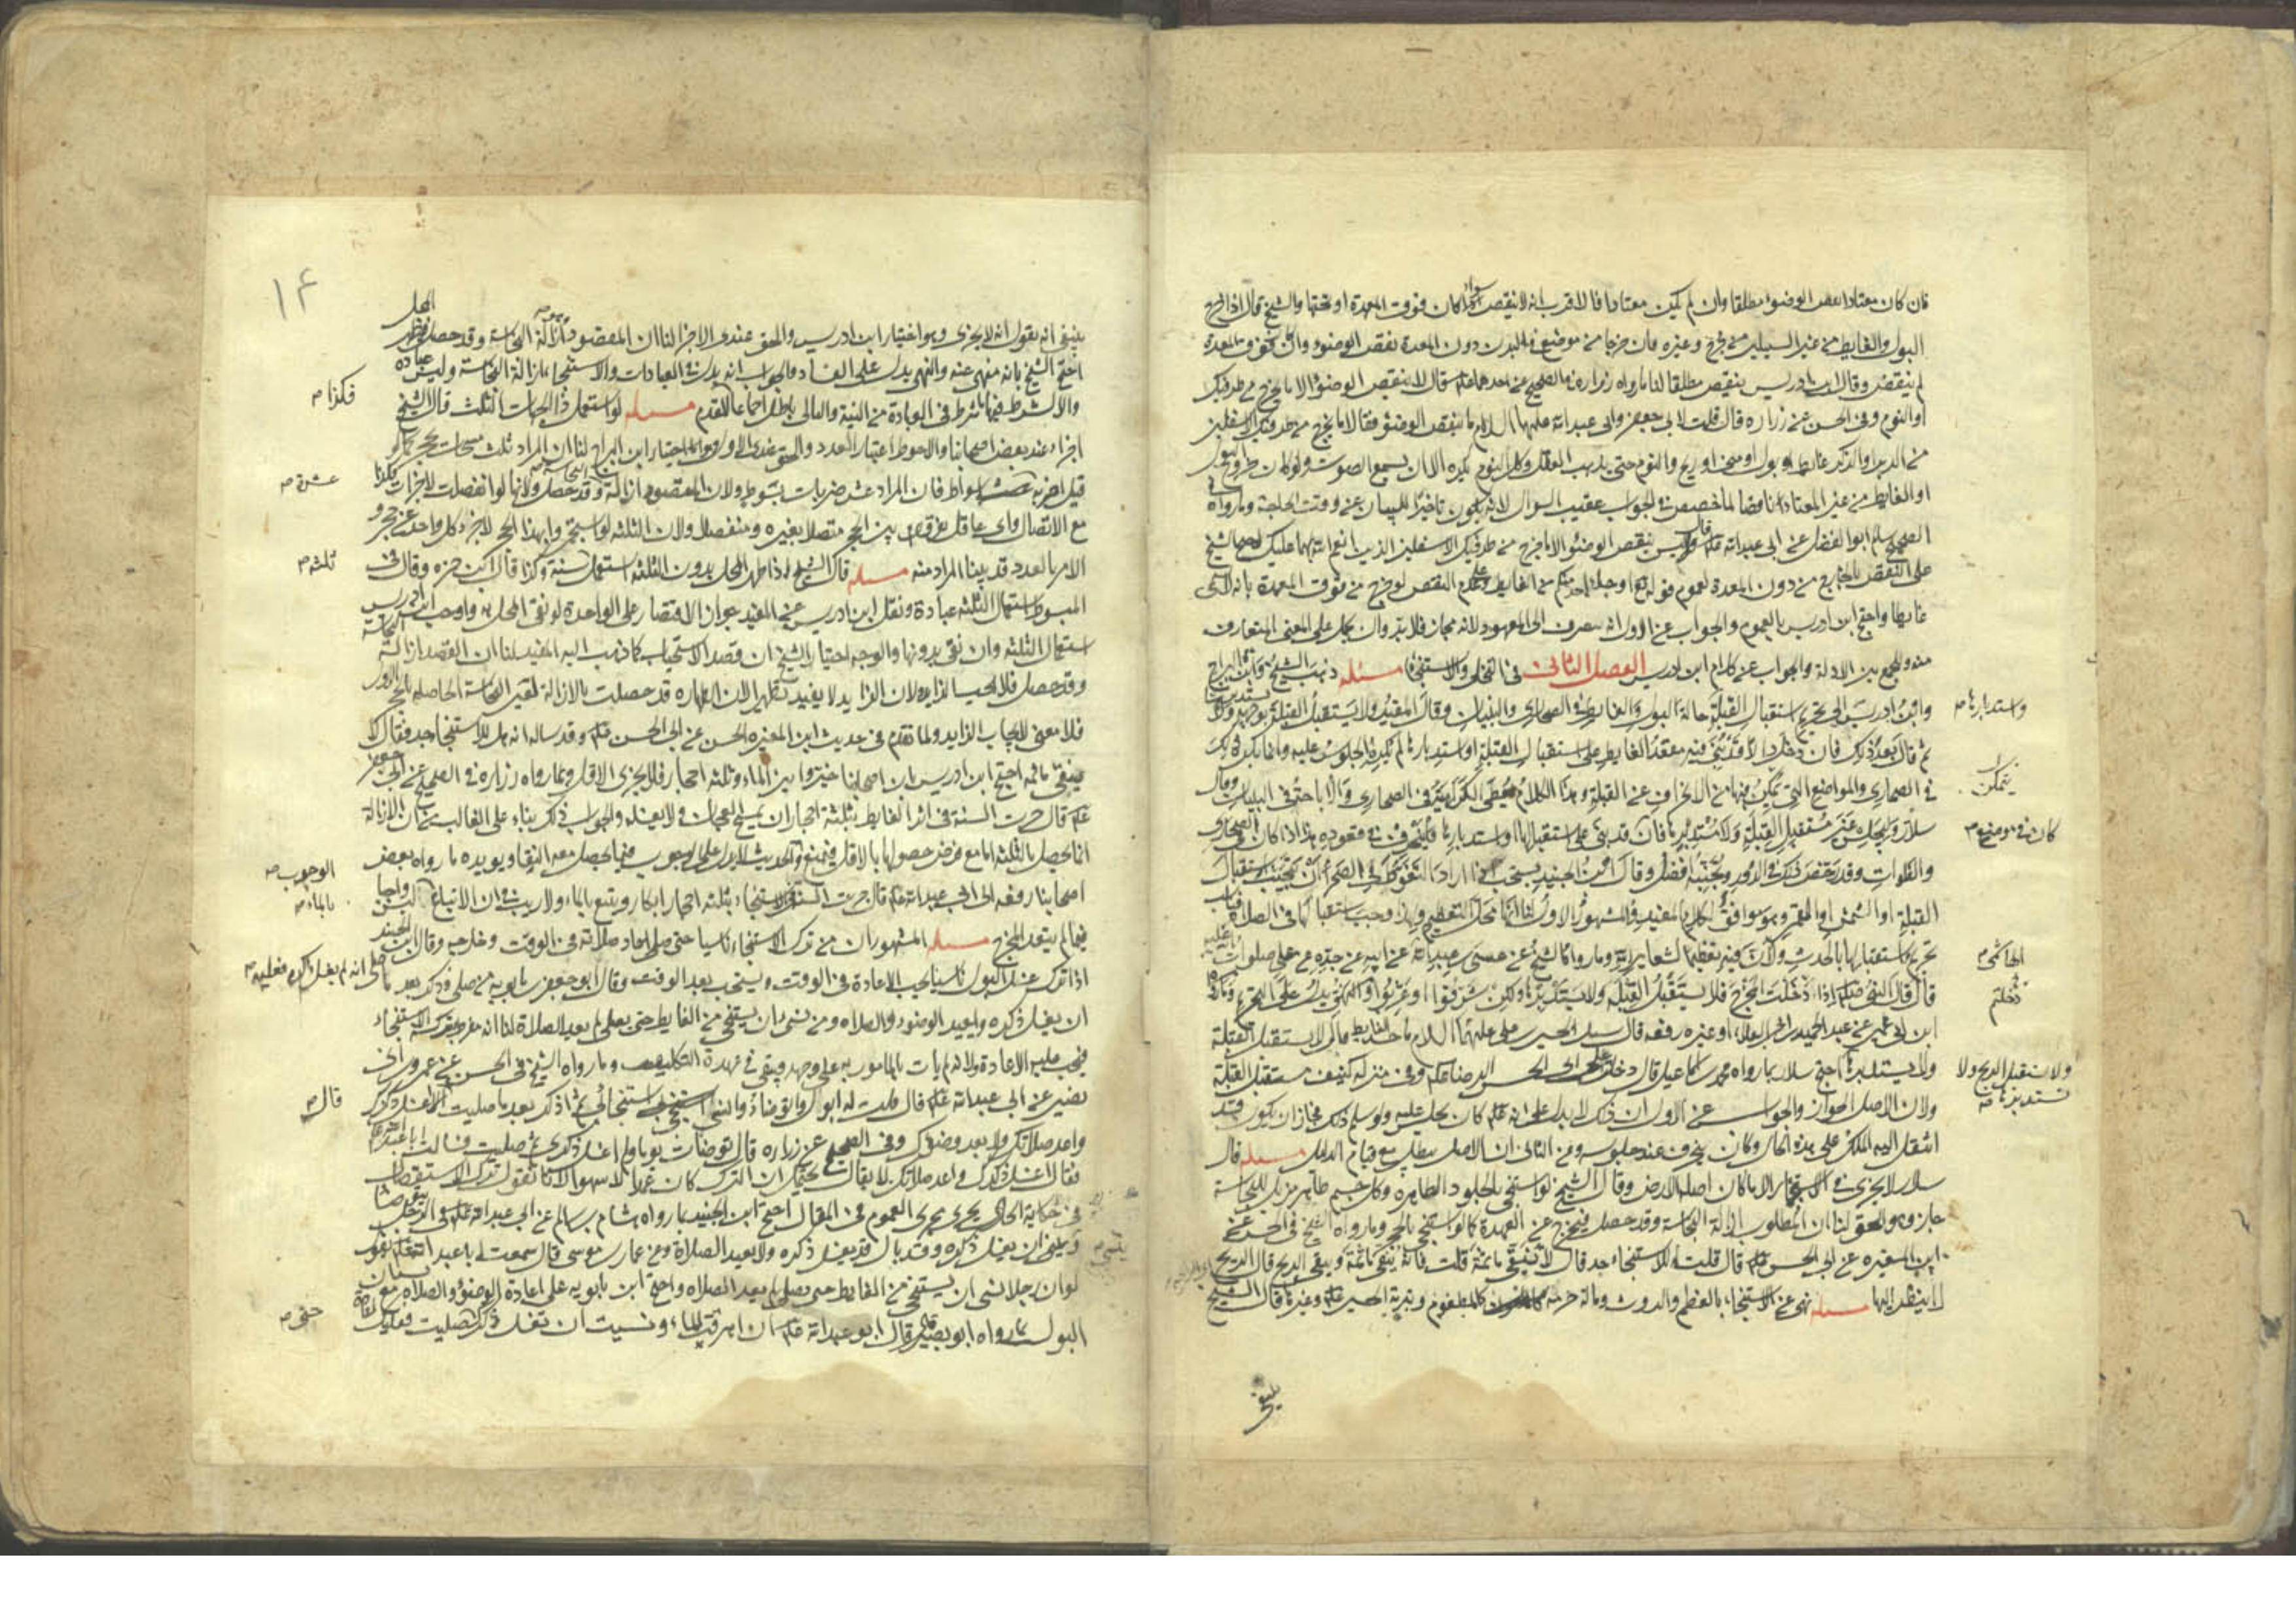 فان كان معتادا نقض الوضوء مطلقا وان لم يكن معتادا فالاقرب انه لا ينقض سواء كان فوق المعدة او تحتها والشيخ قال اذا خرج
البول والغايط من غير السبيلين من جرح وغيره فان خرجا من موضع في البدن دون المعدة نقض الوضوء وان كان فوق المعدة
لم ينقض وقال ابن ادريس ينقض مطلقا لنا ما رواه زرارة في الصحيح عن احدهما قال لا ينقض الوضوء الا ما يخرج من طرفيك
او النوم وفي الحسن عن زراره قال قلت لابي جعفر وابي عبد الله عليهما السلام ما ينقض الوضوء فقالا ما يخرج من طرفيك الاسفلين
من الدبر والذكر غايط او بول او مني او ريح والنوم حتى يذهب العقل وكل النوم يكره الا ان يسمع الصوت ولو كان خروج البول
او الغايط من غير المعتاد ناقضا لما خصص في الجواب عقيب السوال لانه يكون تاخيرا للبيان عن وقت الحاجة وما رواه في
الصحيح سالم ابو الفضل عن ابي عبد الله قال ليس ينقض الوضوء الا ما خرج من طرفيك الاسفلين الذين انعم الله بهما عليك احتج الشيخ
على النقض بالخارج من دون المعدة لعموم قوله تع او جاء احد منكم من الغايط وعلى عدم النقض لو خرج من فوق المعدة بانه لا يسمى
غايطا واحتج ابن ادريس بالعموم والجواب عن الاول انه ينصرف الى المعهود لانه مجاز فلا بد وان يحمل على المعنى المتعارف
منه وللجمع بين الادلة والجواب عن كلام ابن ادريس الفصل الثاني في التخلي والاستنجاء مسئلة ذهب الشيخ وابن البراج
وابن ادريس الى تحريم استقبال القبلة حالة البول والغايط في الصحاري والبنيان وقال المفيد ولا يستقبل القبلة بوجهه ولا يستدبرها
واستدبارها
ثم قال بعد ذلك فان دخل دارا قد بني فيه مقعد الغايط على استقبال القبلة او استدبارها لم يكره الجلوس عليه وانما يكره ذلك
في الصحاري والمواضع التي يمكن فيها من الانحراف عن القبلة وهذا الكلام يعطي الكراهية في الصحاري والاباحة في البنيان وقال
يتمكن
سلار وليجلس غير مستقبل القبلة ولا مستدبرها فان قد بني على استقبالها او استدبارها فلينحرف في قعوده هذا اذا كان في الصحاري
كان في موضع
والفلوات وقد رخص ذلك في الدور وتجنبه افضل وقال ابن الجنيد يستحب اذا اراد التغوط في الصحراء ان يتجنب استقبال
القبلة او الشمس او القمر وهو موافق لكلام المفيد والمشهور الاول لنا انها محل التعظيم ولهذا وجب استقبالها في الصلاة فيناسب
تحريم استقبالها بالحدث ولان فيه تعظيما لشعاير الله وما رواه الشيخ عن عيسى بن عبد الله عن ابيه عن جده عن علي صلوات الله عليه
الهاشمي
قال قال النبي اذا دخلت المخرج فلا يستقبل القبلة ولا يستدبرها ولكن شرقوا او غربوا والنهي يدل على التحريم وما رواه
دخلتم
ابن ابي عمير عن عبد الحميد بن ابي العلاء او غيره رفعه قال سئل الحسن بن علي عليهما السلام ما حد الغايط قال لا يستقبل القبلة
ولا يستدبرها احتج سلار بما رواه محمد بن اسماعيل قال دخلت على ابي الحسن الرضا وفي منزله كنيف مستقبل القبلة
ولا تستقبل الريح ولا تستدبرها
ولان الاصل الجواز والجواب عن الاول ان ذلك لا يدل على انه كان يجلس عليه ولو سلم ذلك فجاز ان يكون قد
انتقل اليه الملك على هذه الحال وكان ينحرف عند جلوسه وعن الثاني ان الاصل يبطل مع قيام الدليل مسئلة قال
سلار لا يجزي في الاستجمار الا ما كان اصله الارض وقال الشيخ لو استنجى بالجلود الطاهره وكل جسم طاهر مزيل للنجاسة
جاز وهو الحق لنا ان المطلوب ازالة النجاسة وقد حصل فيخرج عن العهدة كما لو استنجى بالحجر وما رواه الشيخ في الحسن عن
ابن المغيره عن ابي الحسن قال قلت له للاستنجاء حد قال لا ينقى ما ثمة قلت فانه ينقى ما ثمة ويبقى الريح قال الريح
لا ينظر اليها مسئلة نهي عن الاستنجاء بالعظم والروث وماله حرمة كالمطعوم وتربة الحسين وغيرها قال الشيخ
ينبغي
١٤
ينبغي انه يقول انه لا يجزي وهو اختيار ابن ادريس والحق عندي الاجزاء لنا ان المقصود ازالة النجاسة وقد حصل
احتج الشيخ بانه منهي عنه والنهي يدل على الفساد والجواب انه يدل في العبادات والاستنجاء ازالة النجاسة وليس عبادة
والا لشرط فيها ما شرط في العبادة من النية والتالي باطل اجماعا فالمقدم مسئلة لو استعمل ذا الجهات الثلث قال الشيخ
فكذا
اجزاه عند بعض اصحابنا والاحوط اعتبار العدد والحق عندي الاول وهو اختيار ابن البراج لنا ان المراد ثلث مسحات بحجر كما لو
قيل اضربه عشرة اسواط فان المراد عشر ضربات بسوط ولان المقصود ازالة النجاسة وقد حصل ولانها لو انفصلت لاجزات فكذا
عشرة
مع الاتصال واي عاقل يفرق بين الحجر متصلا بغيره ومنفصلا ولان الثلثه لو استجمروا بهذا الحجر لاجزء كل واحد عن حجر و
الامر بالعدد قد بينا المراد منه مسئلة قال الشيخ اذا طهر المحل بدون الثلثه استعمل سنة وكذا قال ابن حمزه وقال في
ثلثه
المبسوط استعمال الثلثه عبادة ونقل ابن ادريس عن المفيد جواز الاقتصار على الواحدة لو نقي المحل بها واوجب ابن ادريس
استعمال الثلثه وان نقي بدونها والوجه اختيار الشيخ ان قصد الاستحباب كما ذهب اليه المفيد لنا ان القصد ازالة النجاسة
وقد حصل فلا يجب الزايد ولان الزايد لا يفيد تطهيرا لان الطهارة قد حصلت بالازالة لعين النجاسة الحاصلة بالحجر الاول
فلا معنى لايجاب الزايد ولما تقدم في حديث ابن المغيره الحسن عن ابي الحسن وقد ساله انه هل للاستنجاء حد فقال لا
ينقى ما ثمه احتج ابن ادريس بان اصحابنا خيروا بين الماء وثلثه احجار فلا يجزى الاقل وبما رواه زرارة في الصحيح عن ابي جعفر
قال جرت السنة في اثر الغايط بثلثة احجار ان يمسح العجان ولا يغسله والجواب ذلك بناء على الغالب من ان الازالة
انما تحصل بالثلثه اما مع فرض حصولها بالاقل فنمنع والحديث لا يدل على الوجوب فيما يحصل معه النقاء ويؤيده ما رواه بعض
الوجوب
اصحابنا رفعه الى ابي عبد الله قال جرت السنة في الاستنجاء بثلثه احجار ابكار ويتبع بالماء ولا ريب في ان الاتباع ليس واجبا
بالماء
فيما لم يتعد المخرج مسئلة المشهور ان من ترك الاستنجاء ناسيا حتى صلى اعاد صلاته في الوقت وخارجه وقال ابن الجنيد
اذا ترك غسل البول ناسيا يجب الاعادة في الوقت ويستحب بعد الوقت وقال ابو جعفر بن بابويه من صلى وذكر بعد ما صلى انه لم يغسل ذكره فعليه
ان يغسل ذكره ويعيد الوضوء والصلاة ومن نسي ان يستنجي من الغايط حتى صلى لم يعد الصلاة لنا انه مفرط بترك الاستنجاء
فيجب عليه الاعادة ولانه لم يات بالمامور به على وجهه فيبقى في عهدة التكليف وما رواه الشيخ في الحسن عن عمرو بن ابي
نصير عن ابي عبد الله قال قلت له ابول واتوضاء وانسى استنجائي ثم اذكر بعد ما صليت قال اغسل ذكرك
قال
واعد صلاتك ولا تعد وضوءك وفي الصحيح عن زراره قال توضات يوما ولم اغسل ذكري ثم صليت فسالت ابا عبد الله
فقال اغسل ذكرك واعد صلاتك لا يقال يحتمل ان الترك كان عمدا لا سهوا لانا نقول ترك الاستفصال
في حكاية الحال يجرى مجرى العموم في المقال احتج ابن الجنيد بما رواه هشام بن سالم عن ابي عبد الله في الرجل يتوضا
وينسى ان يغسل ذكره وقد بال قال يغسل ذكره ولا يعيد الصلاة وعن عمار بن موسى قال سمعت ابا عبد الله يقول
لو ان رجلا نسي ان يستنجي من الغايط حتى يصلي لم يعد الصلاة واحتج ابن بابويه على اعادة الوضوء والصلاة مع نسيان
البول بما رواه ابو بصير قال قال ابو عبد الله ان اهرقت الماء ونسيت ان تغسل ذكرك حتى صليت فعليك اعادة
حتى